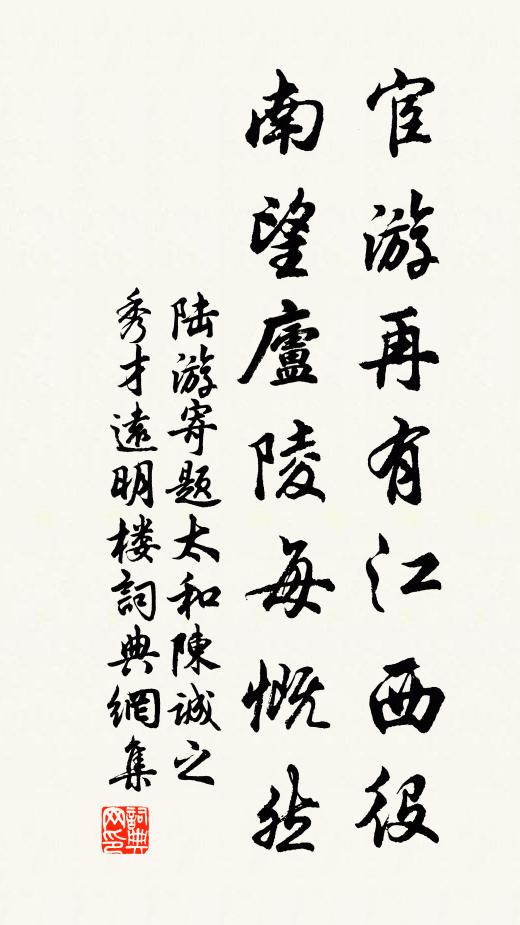 宦游再有江西役
南望廬陵每慨然
陆游寄题太和陳诚之
秀才遠明楼詞典網集
詞典网印